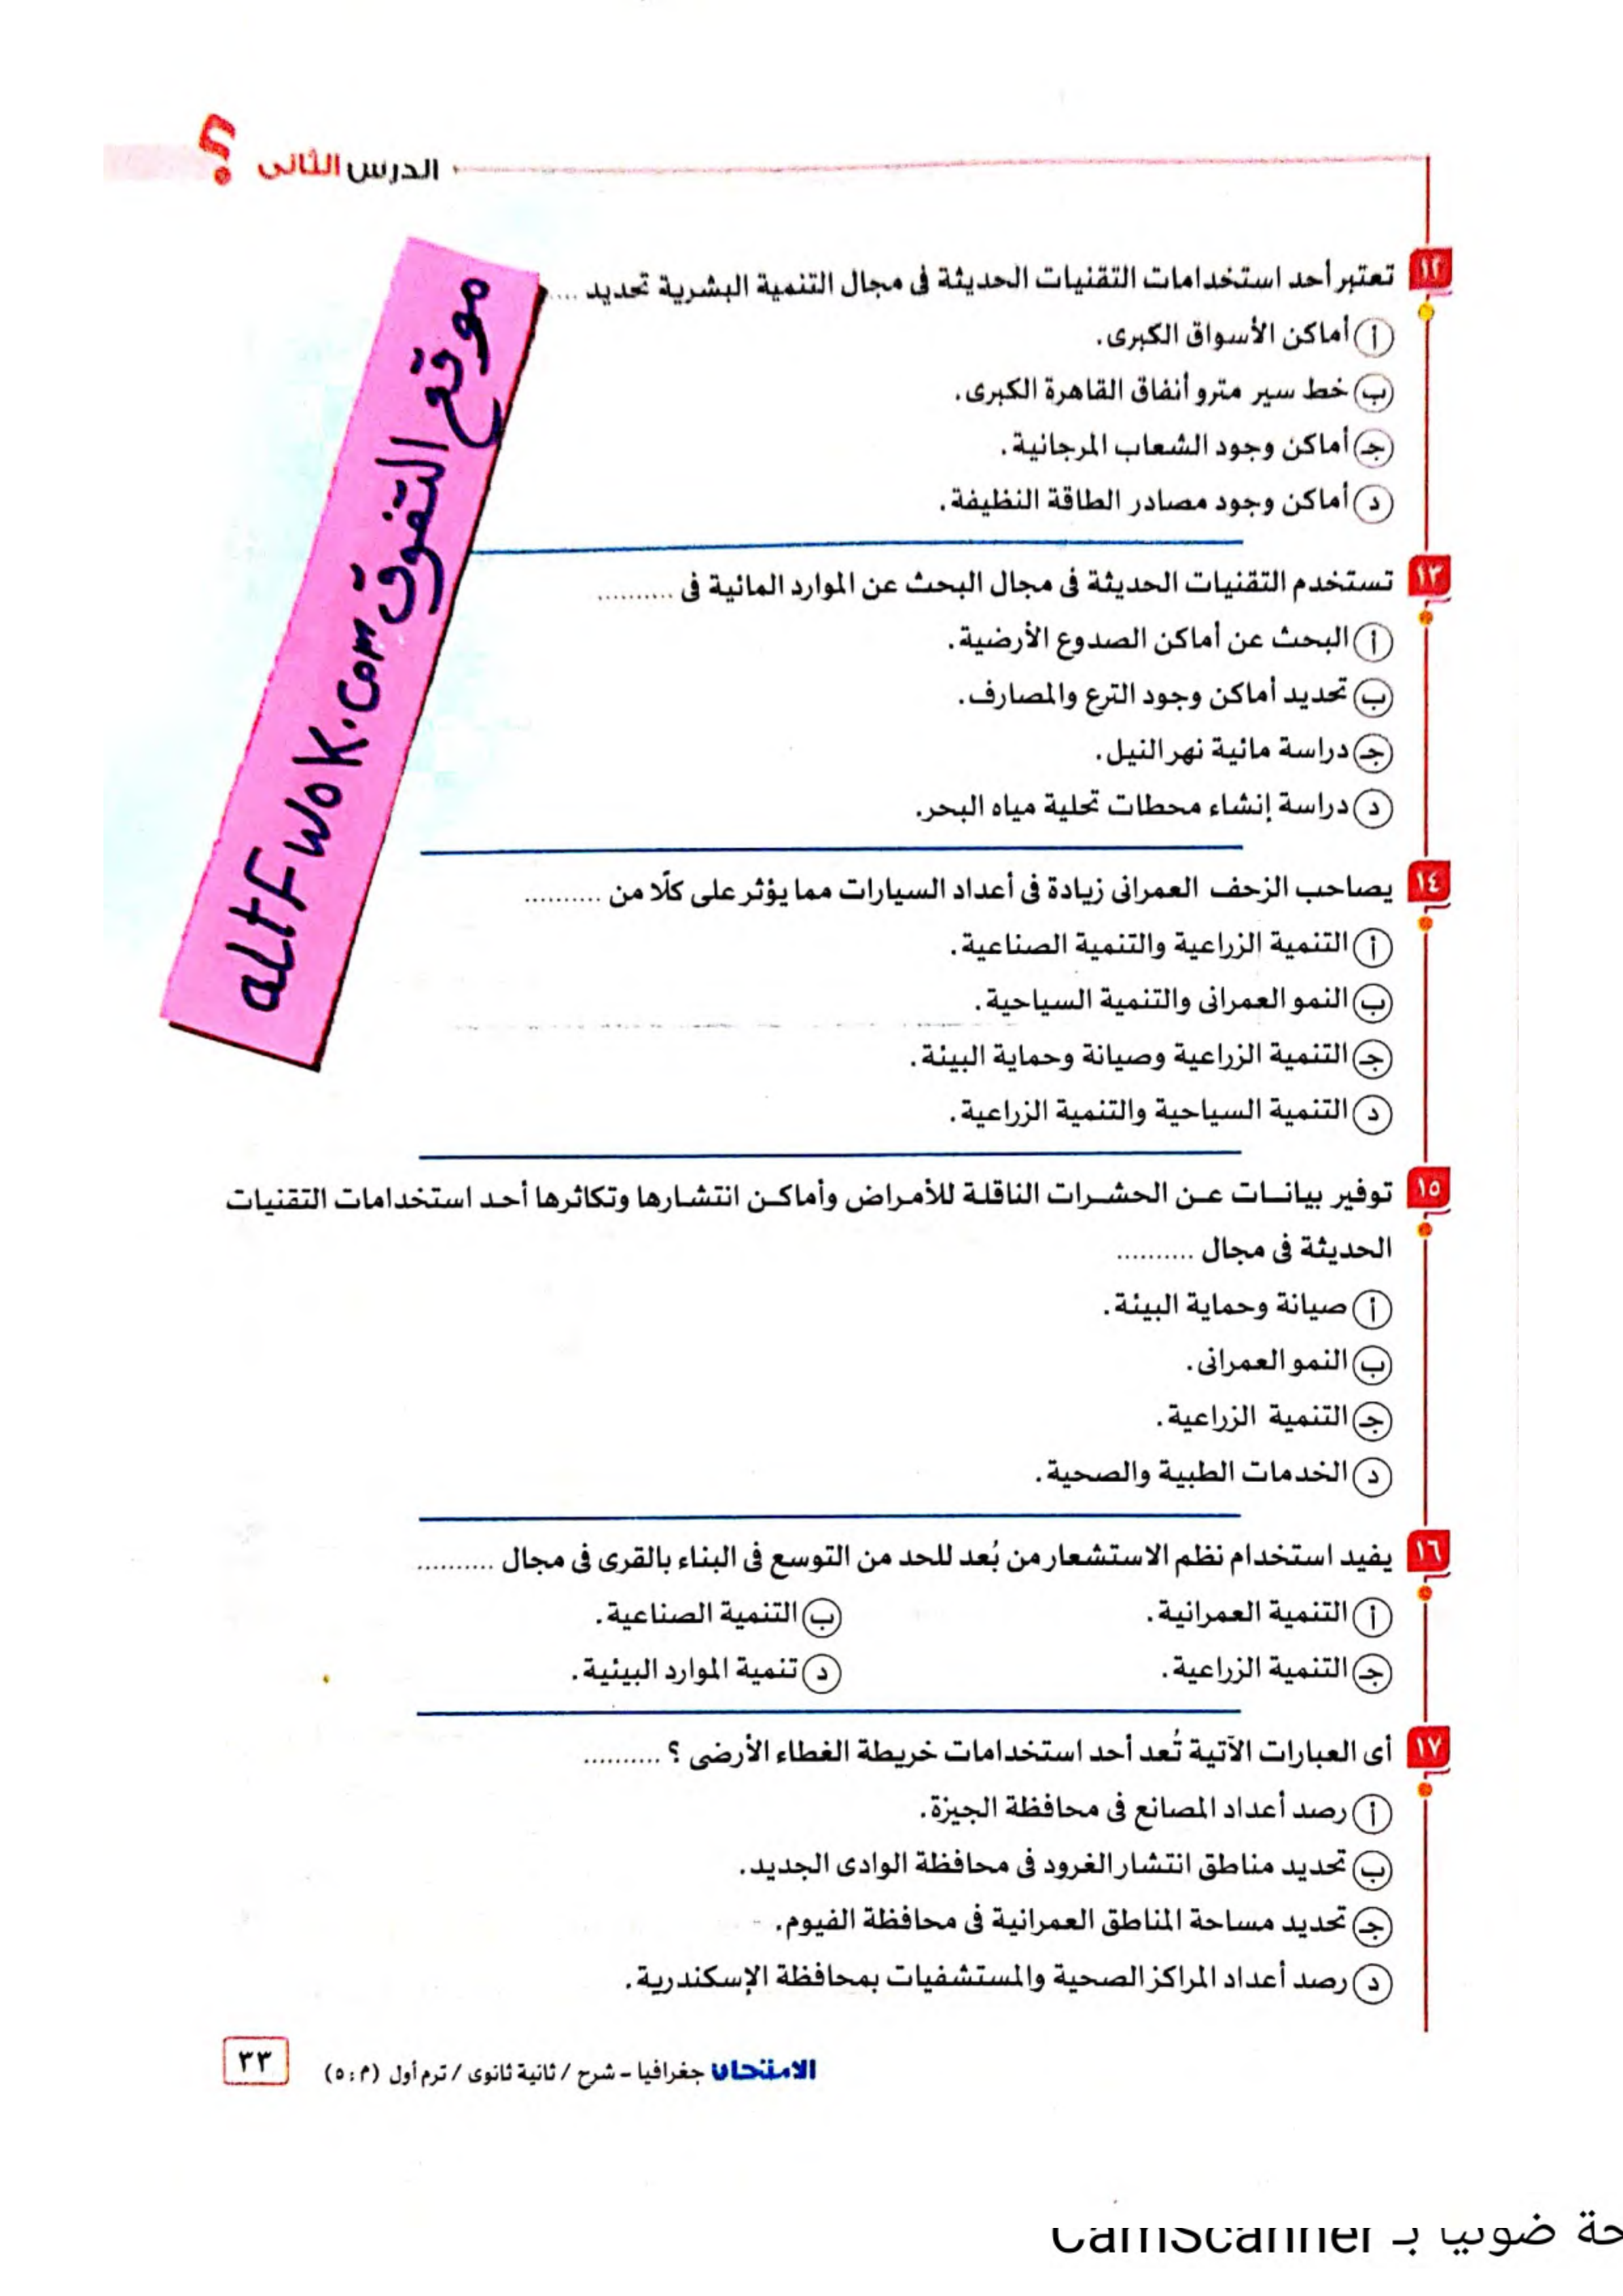 الدرس الثانى
١٢ تعتبر أحد استخدامات التقنيات الحديثة فى مجال التنمية البشرية تحديد ....
أ أماكن الأسواق الكبرى.
ب خط سير مترو أنفاق القاهرة الكبرى.
جـ أماكن وجود الشعاب المرجانية.
د أماكن وجود مصادر الطاقة النظيفة.
موقع التفوق altFwok.com
١٣ تستخدم التقنيات الحديثة فى مجال البحث عن الموارد المائية فى ..........
أ البحث عن أماكن الصدوع الأرضية.
ب تحديد أماكن وجود الترع والمصارف.
جـ دراسة مائية نهر النيل.
د دراسة إنشاء محطات تحلية مياه البحر.
١٤ يصاحب الزحف العمرانى زيادة فى أعداد السيارات مما يؤثر على كلًا من ..........
أ التنمية الزراعية والتنمية الصناعية.
ب النمو العمرانى والتنمية السياحية.
جـ التنمية الزراعية وصيانة وحماية البيئة.
د التنمية السياحية والتنمية الزراعية.
١٥ توفير بيانات عن الحشرات الناقلة للأمراض وأماكن انتشارها وتكاثرها أحد استخدامات التقنيات
الحديثة فى مجال ..........
أ صيانة وحماية البيئة.
ب النمو العمرانى.
جـ التنمية الزراعية.
د الخدمات الطبية والصحية.
١٦ يفيد استخدام نظم الاستشعار من بُعد للحد من التوسع فى البناء بالقرى فى مجال ..........
أ التنمية العمرانية. ب التنمية الصناعية.
جـ التنمية الزراعية. د تنمية الموارد البيئية.
١٧ أى العبارات الآتية تُعد أحد استخدامات خريطة الغطاء الأرضى ؟ ..........
أ رصد أعداد المصانع فى محافظة الجيزة.
ب تحديد مناطق انتشار الغرود فى محافظة الوادى الجديد.
جـ تحديد مساحة المناطق العمرانية فى محافظة الفيوم.
د رصد أعداد المراكز الصحية والمستشفيات بمحافظة الإسكندرية.
الامتحان جغرافيا - شرح / ثانية ثانوى / ترم أول (م : ٥) ٣٣
حة ضوئيا بـ CamScanner